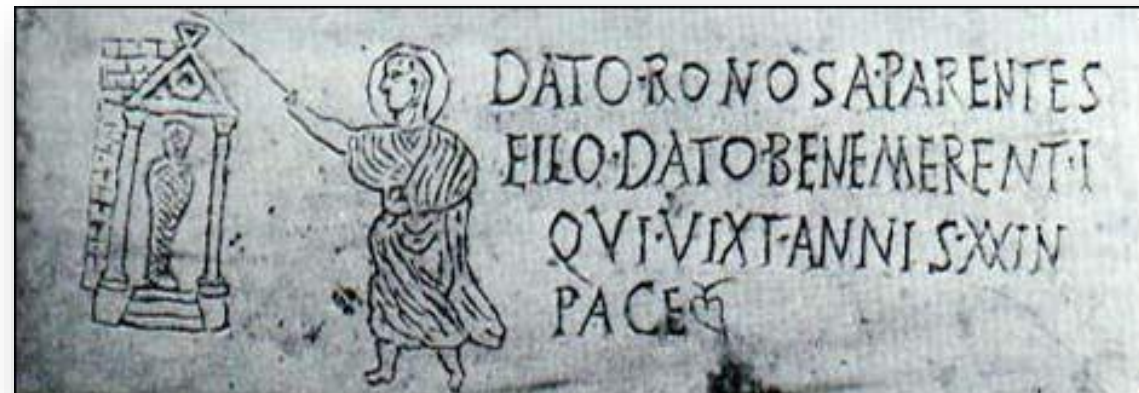 DATO·RONOSA·PARENTES
FILO·DATO·BENEMERENT·I
QVI·VIXT·ANNIS·XXIN
PACE